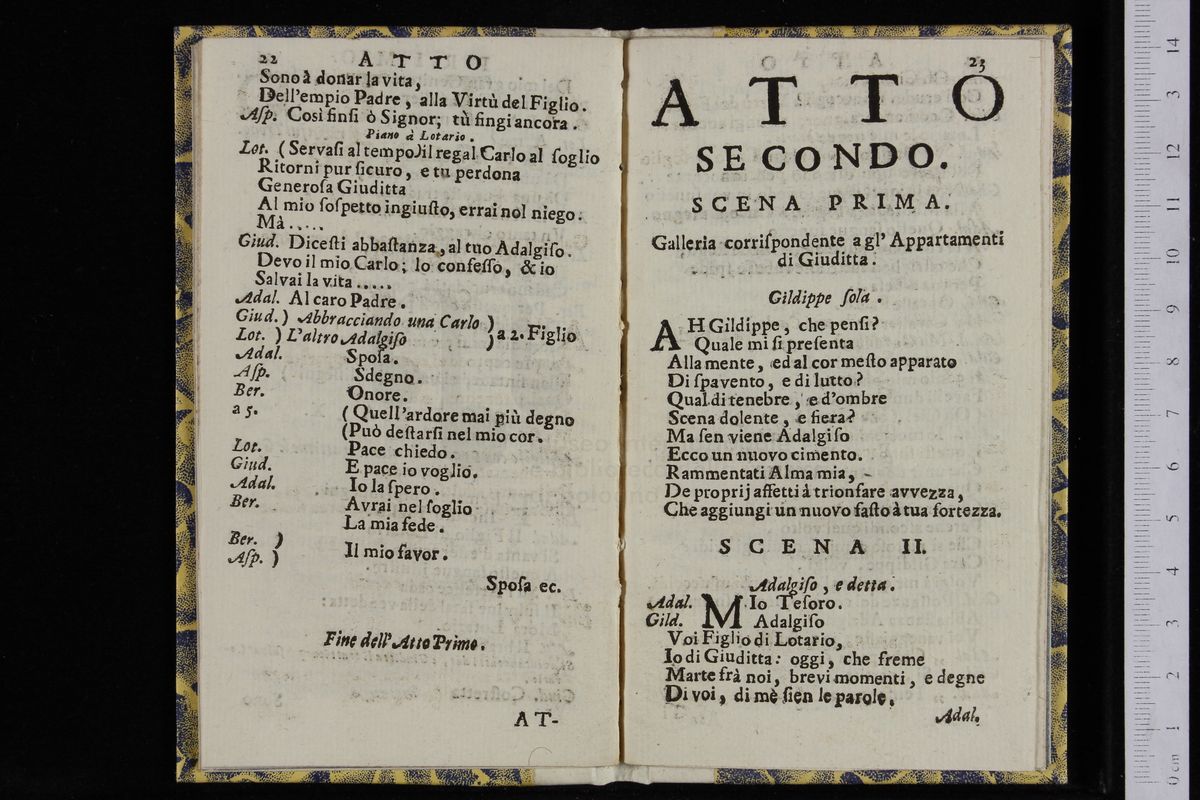 22 ATTO
Sono à donar la vita,
Dell'empio Padre, alla Virtù del Figlio.
Asp. Cosi finsi ò Signor; tù fingi ancora.
Piano à Lotario.
Lot. (Servasi al tempo) il regal Carlo al soglio
Ritorni pur sicuro, e tu perdona
Generosa Giuditta
Al mio sospetto ingiusto, errai nol niego.
Mà.....
Giud. Dicesti abbastanza, al tuo Adalgiso.
Devo il mio Carlo; lo confesso, & io
Salvai la vita.....
Adal. Al caro Padre.
Giud.) Abbracciando una Carlo )
Lot. ) L'altro Adalgiso ) a 2. Figlio
Adal. Sposa.
Asp. Sdegno.
Ber. Onore.
a 5. (Quell'ardore mai più degno
(Può destarsi nel mio cor.
Lot. Pace chiedo.
Giud. E pace io voglio.
Adal. Io la spero.
Ber. Avrai nel soglio
La mia fede.
Ber. )
Asp. ) Il mio favor.
Sposa ec.
Fine dell'Atto Primo.
AT-
23
ATTO
SECONDO.
SCENA PRIMA.
Galleria corrispondente a gl' Appartamenti
di Giuditta.
Gildippe sola.
AH Gildippe, che pensi?
Quale mi si presenta
Alla mente, ed al cor mesto apparato
Di spavento, e di lutto?
Qual di tenebre, e d'ombre
Scena dolente, e fiera?
Ma sen viene Adalgiso
Ecco un nuovo cimento.
Rammentati Alma mia,
De proprij affetti à trionfare avvezza,
Che aggiungi un nuovo fasto à tua fortezza.
SCENA II.
Adalgiso, e detta.
Adal. MIo Tesoro.
Gild. Adalgiso
Voi Figlio di Lotario,
Io di Giuditta: oggi, che freme
Marte frà noi, brevi momenti, e degne
Di voi, di mè sien le parole.
Adal.